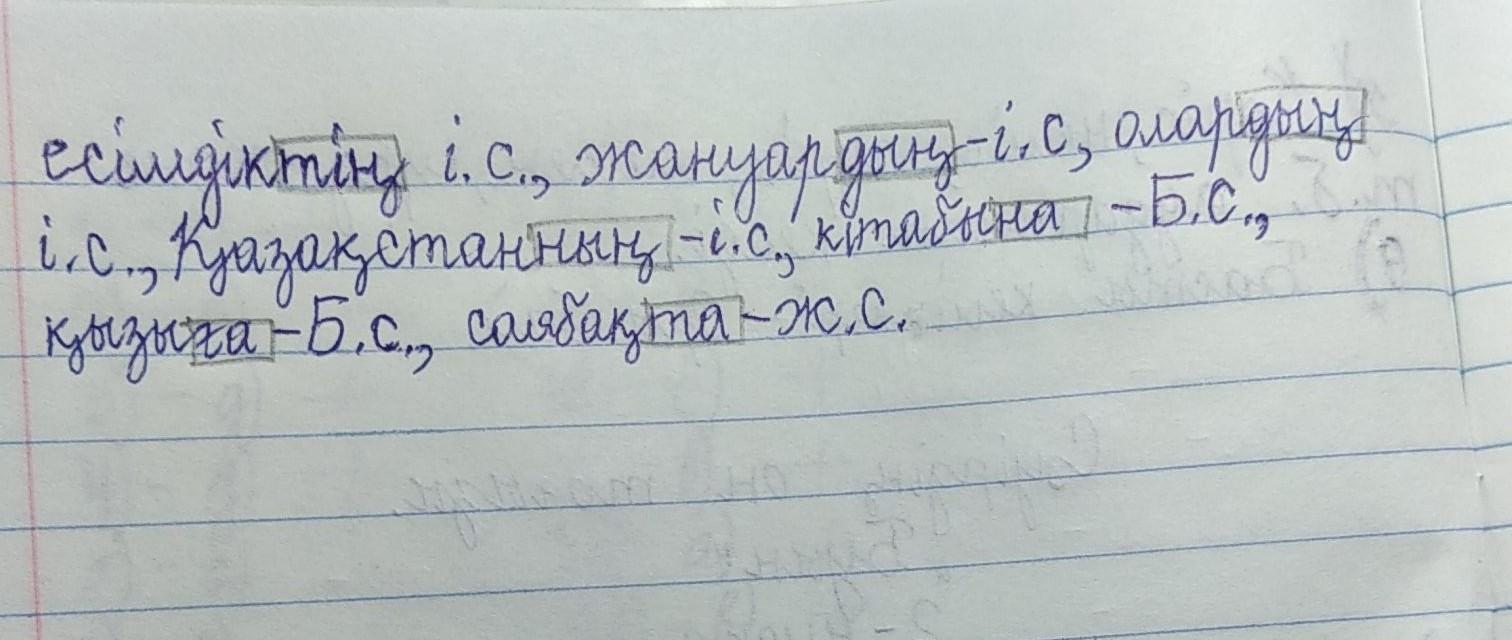 есімдіктің і.с., жануардың-і.с, олардың
і.с., Қазақстанның-і.с., кітабына -Б.С.,
қызыға-Б.с., саябақта-ж.с.